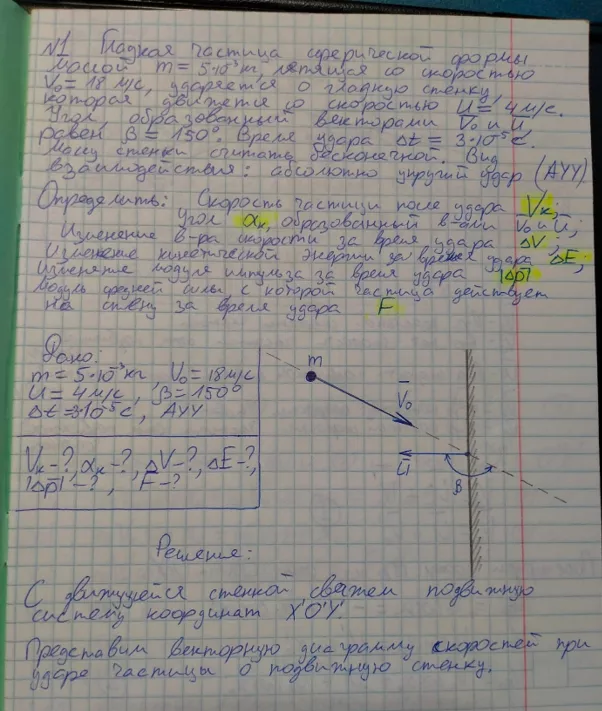 №1 Гладкая частица сферической формы
массой m = 5·10⁻³кг, летящая со скоростью
V₀ = 18 м/с, ударяется о гладкую стенку,
которая движется со скоростью U = 4 м/с.
Угол, образованный векторами V̅₀ и U̅,
равен β = 150°. Время удара Δt = 3·10⁻⁵ с.
Массу стенки считать бесконечной. Вид
взаимодействия: абсолютно упругий удар (АУУ)
Определить: Скорость частицы после удара Vк;
Угол αк, образованный в-ами V̅₀ и U̅;
Изменение в-ра скорости за время удара ΔV;
Изменение кинетической энергии за время удара ΔE;
Изменение модуля импульса за время удара |Δp̅|
Модуль средней силы с которой частица действует
на стену за время удара F
Дано:
m = 5·10⁻³кг V₀ = 18 м/с
U = 4 м/с, β = 150°
Δt = 3·10⁻⁵ с, АУУ
Vк-?, αк-?, ΔV-?, ΔE-?,
|Δp̅|-?, F-?
m
V̅₀
U̅
β
Решение:
С движущейся стенкой свяжем подвижную
систему координат X'O'Y'.
Представим векторную диаграмму скоростей при
ударе частицы о подвижную стенку.